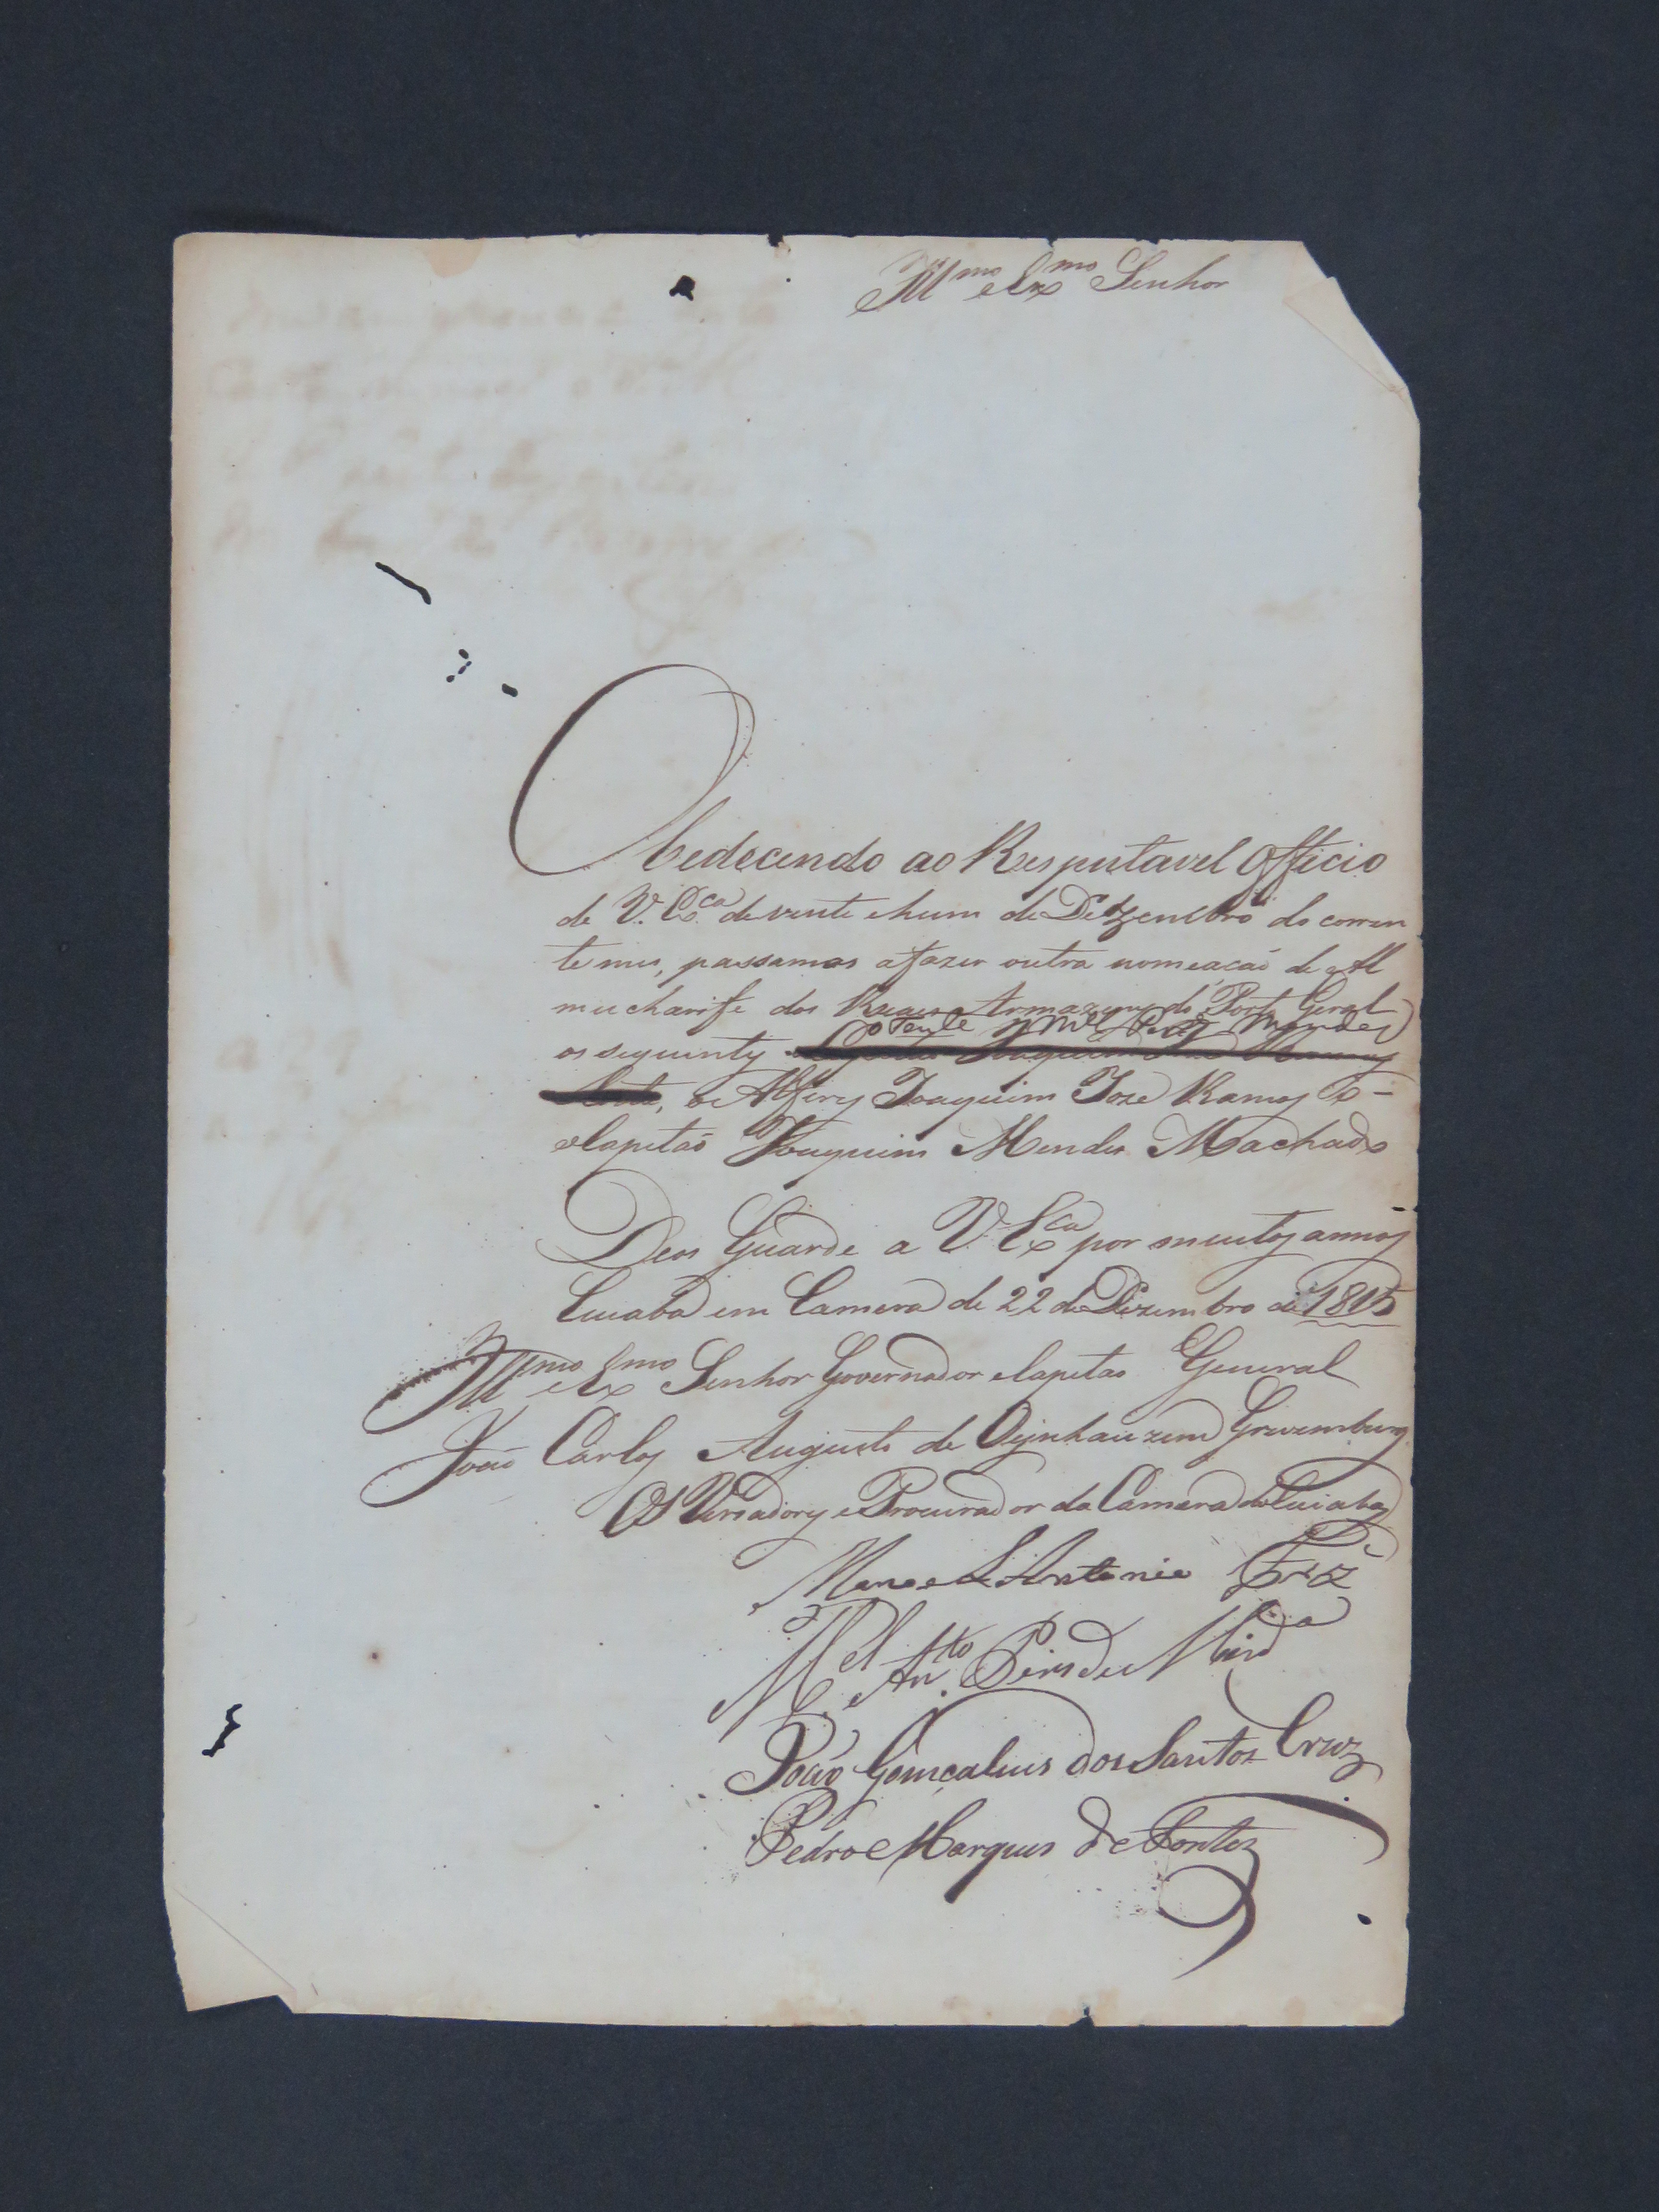 Ill.mo e Ex.mo Senhor
Obedecendo ao Respeitavel Officio
de V. Ex.ca de vinte e hum de Dezembro do corren
te mes, passamos a fazer outra nomeacaõ de Al
mucharife dos Reaes Armazems do Port Geral
o Tente Mel Mendes
os seguintes
, o Alferes Joaquim Joze Ramos o
Capitaõ Joaquim Mendes Machado
Deos Guarde a V. Ex.ca por muitos annos
Cuiabá em Camera de 22 de Dezembro de 1815
Ill.mo e Ex.mo Senhor Governador e Capitao General
Joaõ Carlos Augusto de Oynhauzem Grevemburg
Os Veriadores e Procurador da Camera do Cuiaba
Manoel Antonio
M.el Ant.o Pires de Mir.da
João Gomçalues dos Santos Cruz
Pedro Marques de Fontes